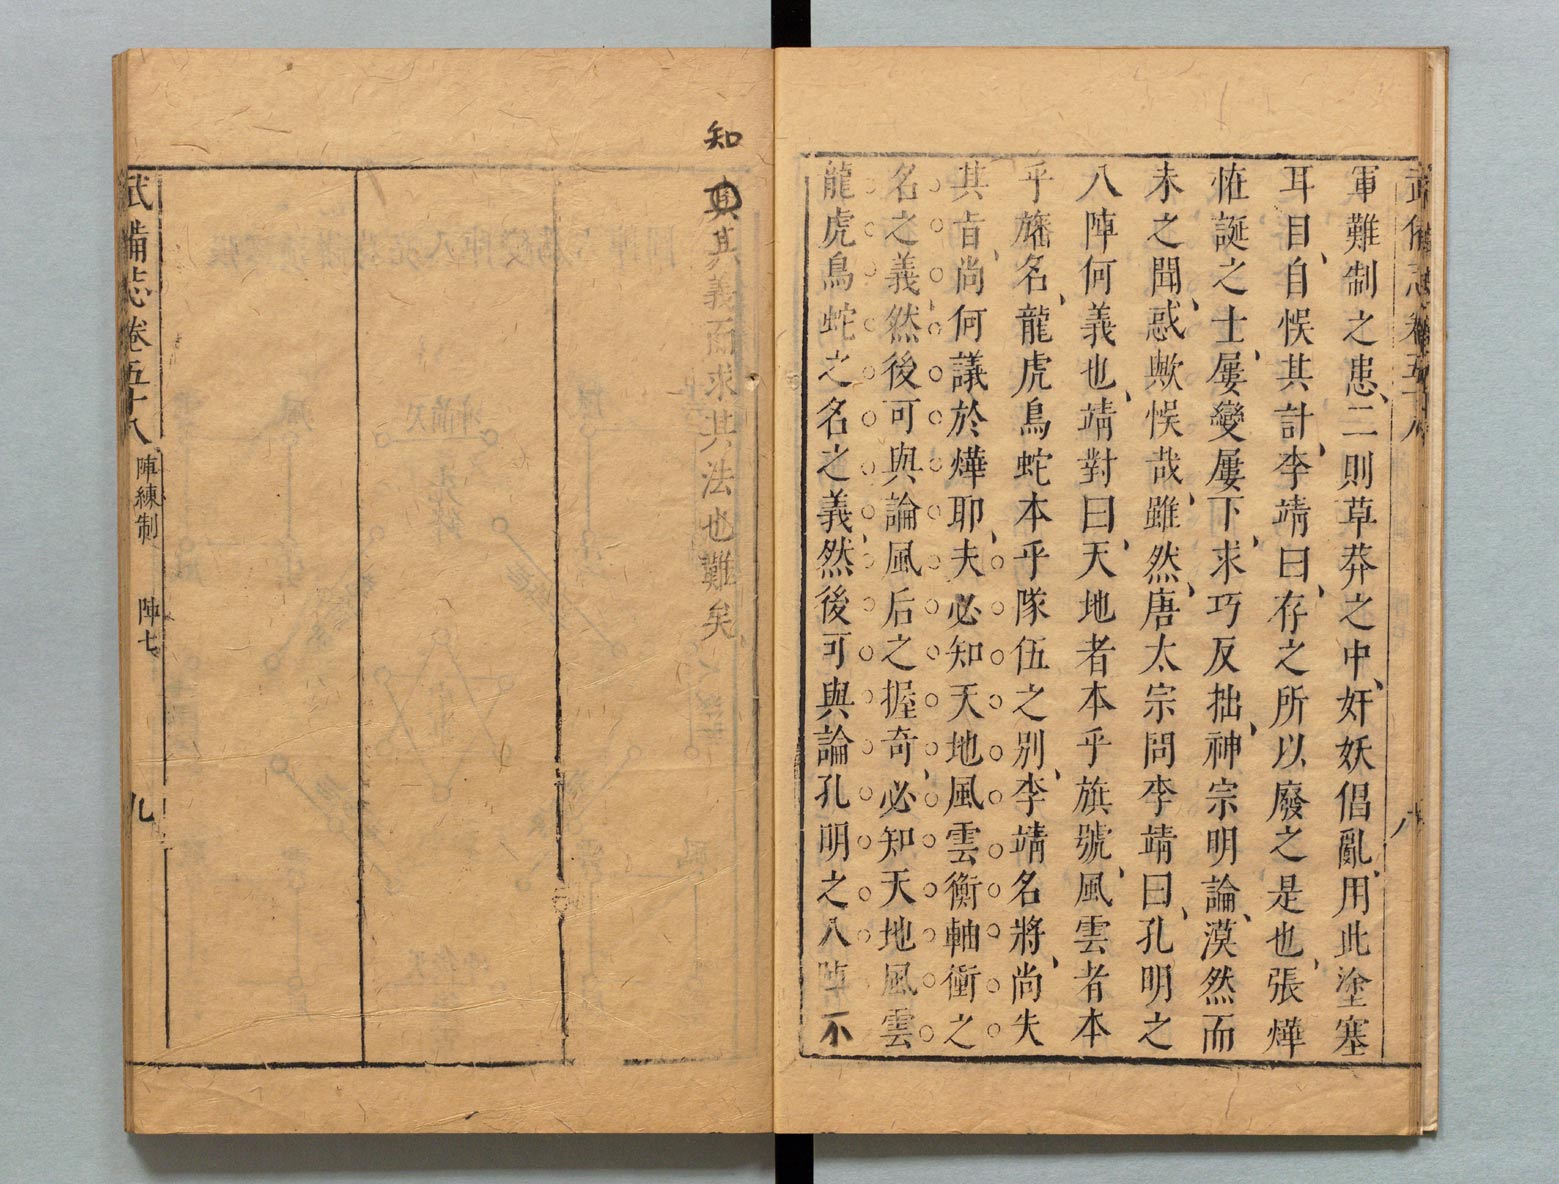 武備志卷五十八
八
軍難制之患、二則草莽之中、奸妖倡亂、用此塗塞
耳目、自悞其計、李靖曰、存之所以廢之是也、張燁
恠誕之士、屢變屢下、求巧反拙、神宗明論、漠然而
未之聞、惑歟悞哉、雖然、唐太宗問李靖曰、孔明之
八陣何義也、靖對曰、天地者本乎旗號、風雲者本
乎旛名、龍虎鳥蛇本乎隊伍之別、李靖名將、尚失
其旨、尚何議於燁耶、夫必知天地風雲衡軸衝之
名之義、然後可與論風后之握奇、必知天地風雲
龍虎鳥蛇之名之義、然後可與論孔明之八陣不
知
其義而求其法也難矣
武備志卷五十八 陣練制 陣七 九